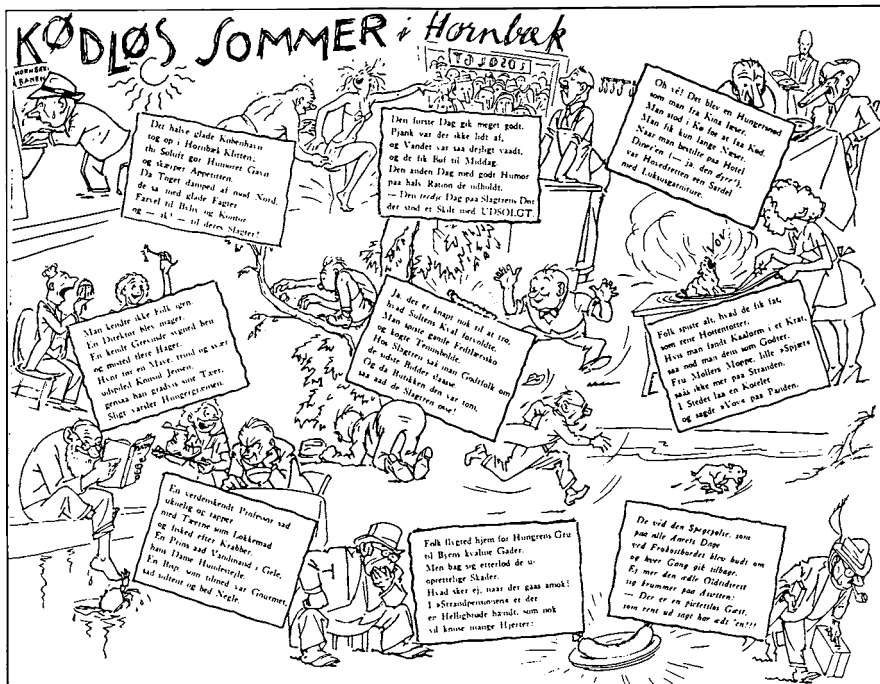 KØDLØS SOMMER i Hornbæk
HORNBÆK
BANEN
UDSOLGT
Det halve glade København
tog op i Hornbæk Klitten;
thi Soluft gør Humøret Gavn
og skærper Appetitten.
Da Toget damped af mod Nord,
de sa' med glade Fagter
Farvel til Byliv og Kontor
og — ak! — til deres Slagter!
Den første Dag gik meget godt.
Pjank var der ikke lidt af,
og Vandet var saa dejligt vaadt,
og de fik Bøf til Middag.
Den anden Dag med godt Humør
paa halv Ration de udholdt.
— Den tredje Dag paa Slagtrens Dør
der stod et Skilt med UDSOLGT.
Oh vé! Det blev en Hungersnød
som man fra Kina læser.
Man stod i Kø for at faa Kød.
Man fik kun lange Næser.
Naar man bestilte paa Hotel
Diner'en (— ja, den dyre!),
var Hovedretten en Sardel
med Luksusgarniture.
Man kender ikke Folk igen.
En Direktør blev mager.
En kendt Grevinde svigted hen
og misted flere Hager.
Hvor før en Mave, trind og svær
udspiled Kunstn. Jensen,
gensaa han gradvis sine Tæer,
Sligt varsler Hungergrænsen.
Ja, det er knapt nok til at tro,
hvad Sultens Kval forvoldte.
Man spiste gamle Fritluftssko
og kogte Tennisbolde.
Hos Slagtren saa man Godtfolk om
de sidste Bidder slaasse.
Og da Butikken den var tom,
saa aad de Slagtren osse!
VOV
Folk spiste alt, hvad de fik fat,
som rene Hottentotter.
Hvis man fandt Kaalorm i et Krat,
saa nød man dem som Godter.
Fru Møllers Moppe, lille »Spjæt«
saas ikke mer paa Stranden.
I Stedet laa en Kotelet
og sagde »Vov« paa Panden.
En verdenskendt Professor sad
ukuelig og tapper
med Tæerne som Lokkemad
og fisked efter Krabber.
En Prins aad Vandmand i Gele,
hans Dame Hundestejle.
En Bisp, som tilmed var Gourmet,
sad sultent og bed Negle.
Folk flygted hjem for Hungrens Gru
til Byens kvalme Gader.
Men bag sig efterlod de u-
oprettelige Skader.
Hvad sker ej, naar der gaas amok?
I »Strandpensionen« er der
en Helligbrøde hændt, som nok
vil knuse mange Hjerter:
De véd den Spegepølse, som
paa alle Aarets Dage
ved Frokostbordet blev budt om
og hver Gang gik tilbage.
Ej mer den ædle Oldtidsrest
sig krummer paa Asietten:
— Der er en pietetsløs Gæst,
som rent ud sagt har ædt 'en!!!